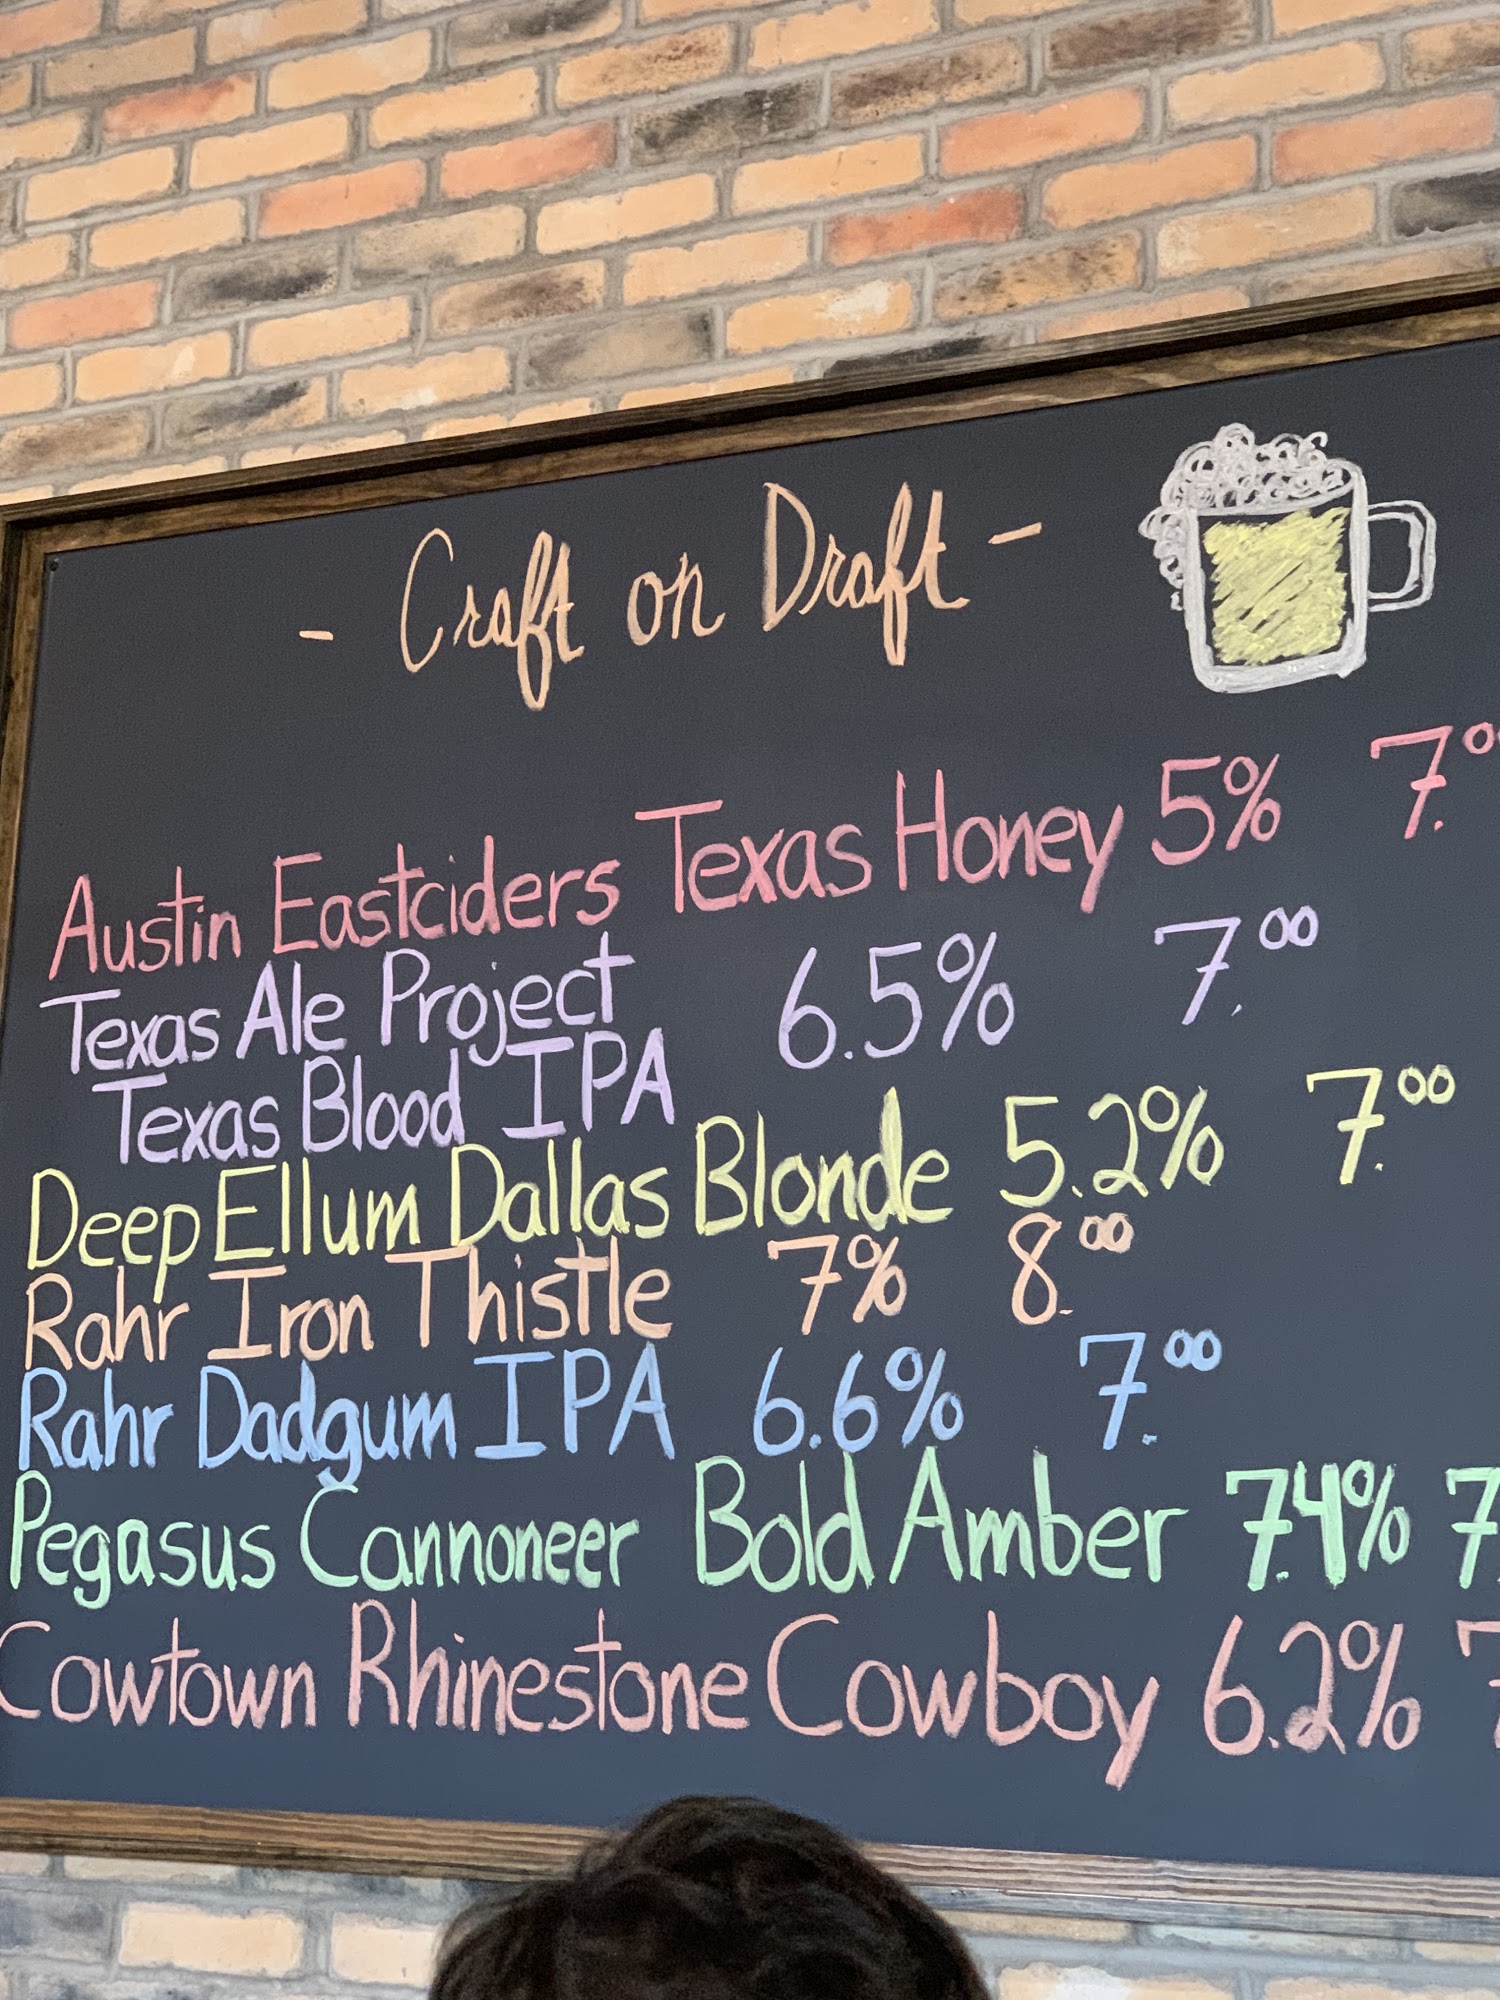 - Craft on Draft -
Austin Eastciders Texas Honey 5% 7.00
Texas Ale Project 6.5% 7.00
Texas Blood IPA
Deep Ellum Dallas Blonde 5.2% 7.00
Rahr Iron Thistle 7% 8.00
Rahr Dadgum IPA 6.6% 7.00
Pegasus Cannoneer Bold Amber 7.4% 7.
Cowtown Rhinestone Cowboy 6.2% 7